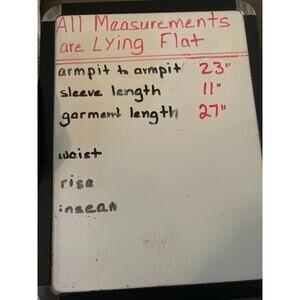 All Measurements
are Lying Flat
armpit to armpit 23"
sleeve length 11"
garment length 27"
waist
rise
inseam